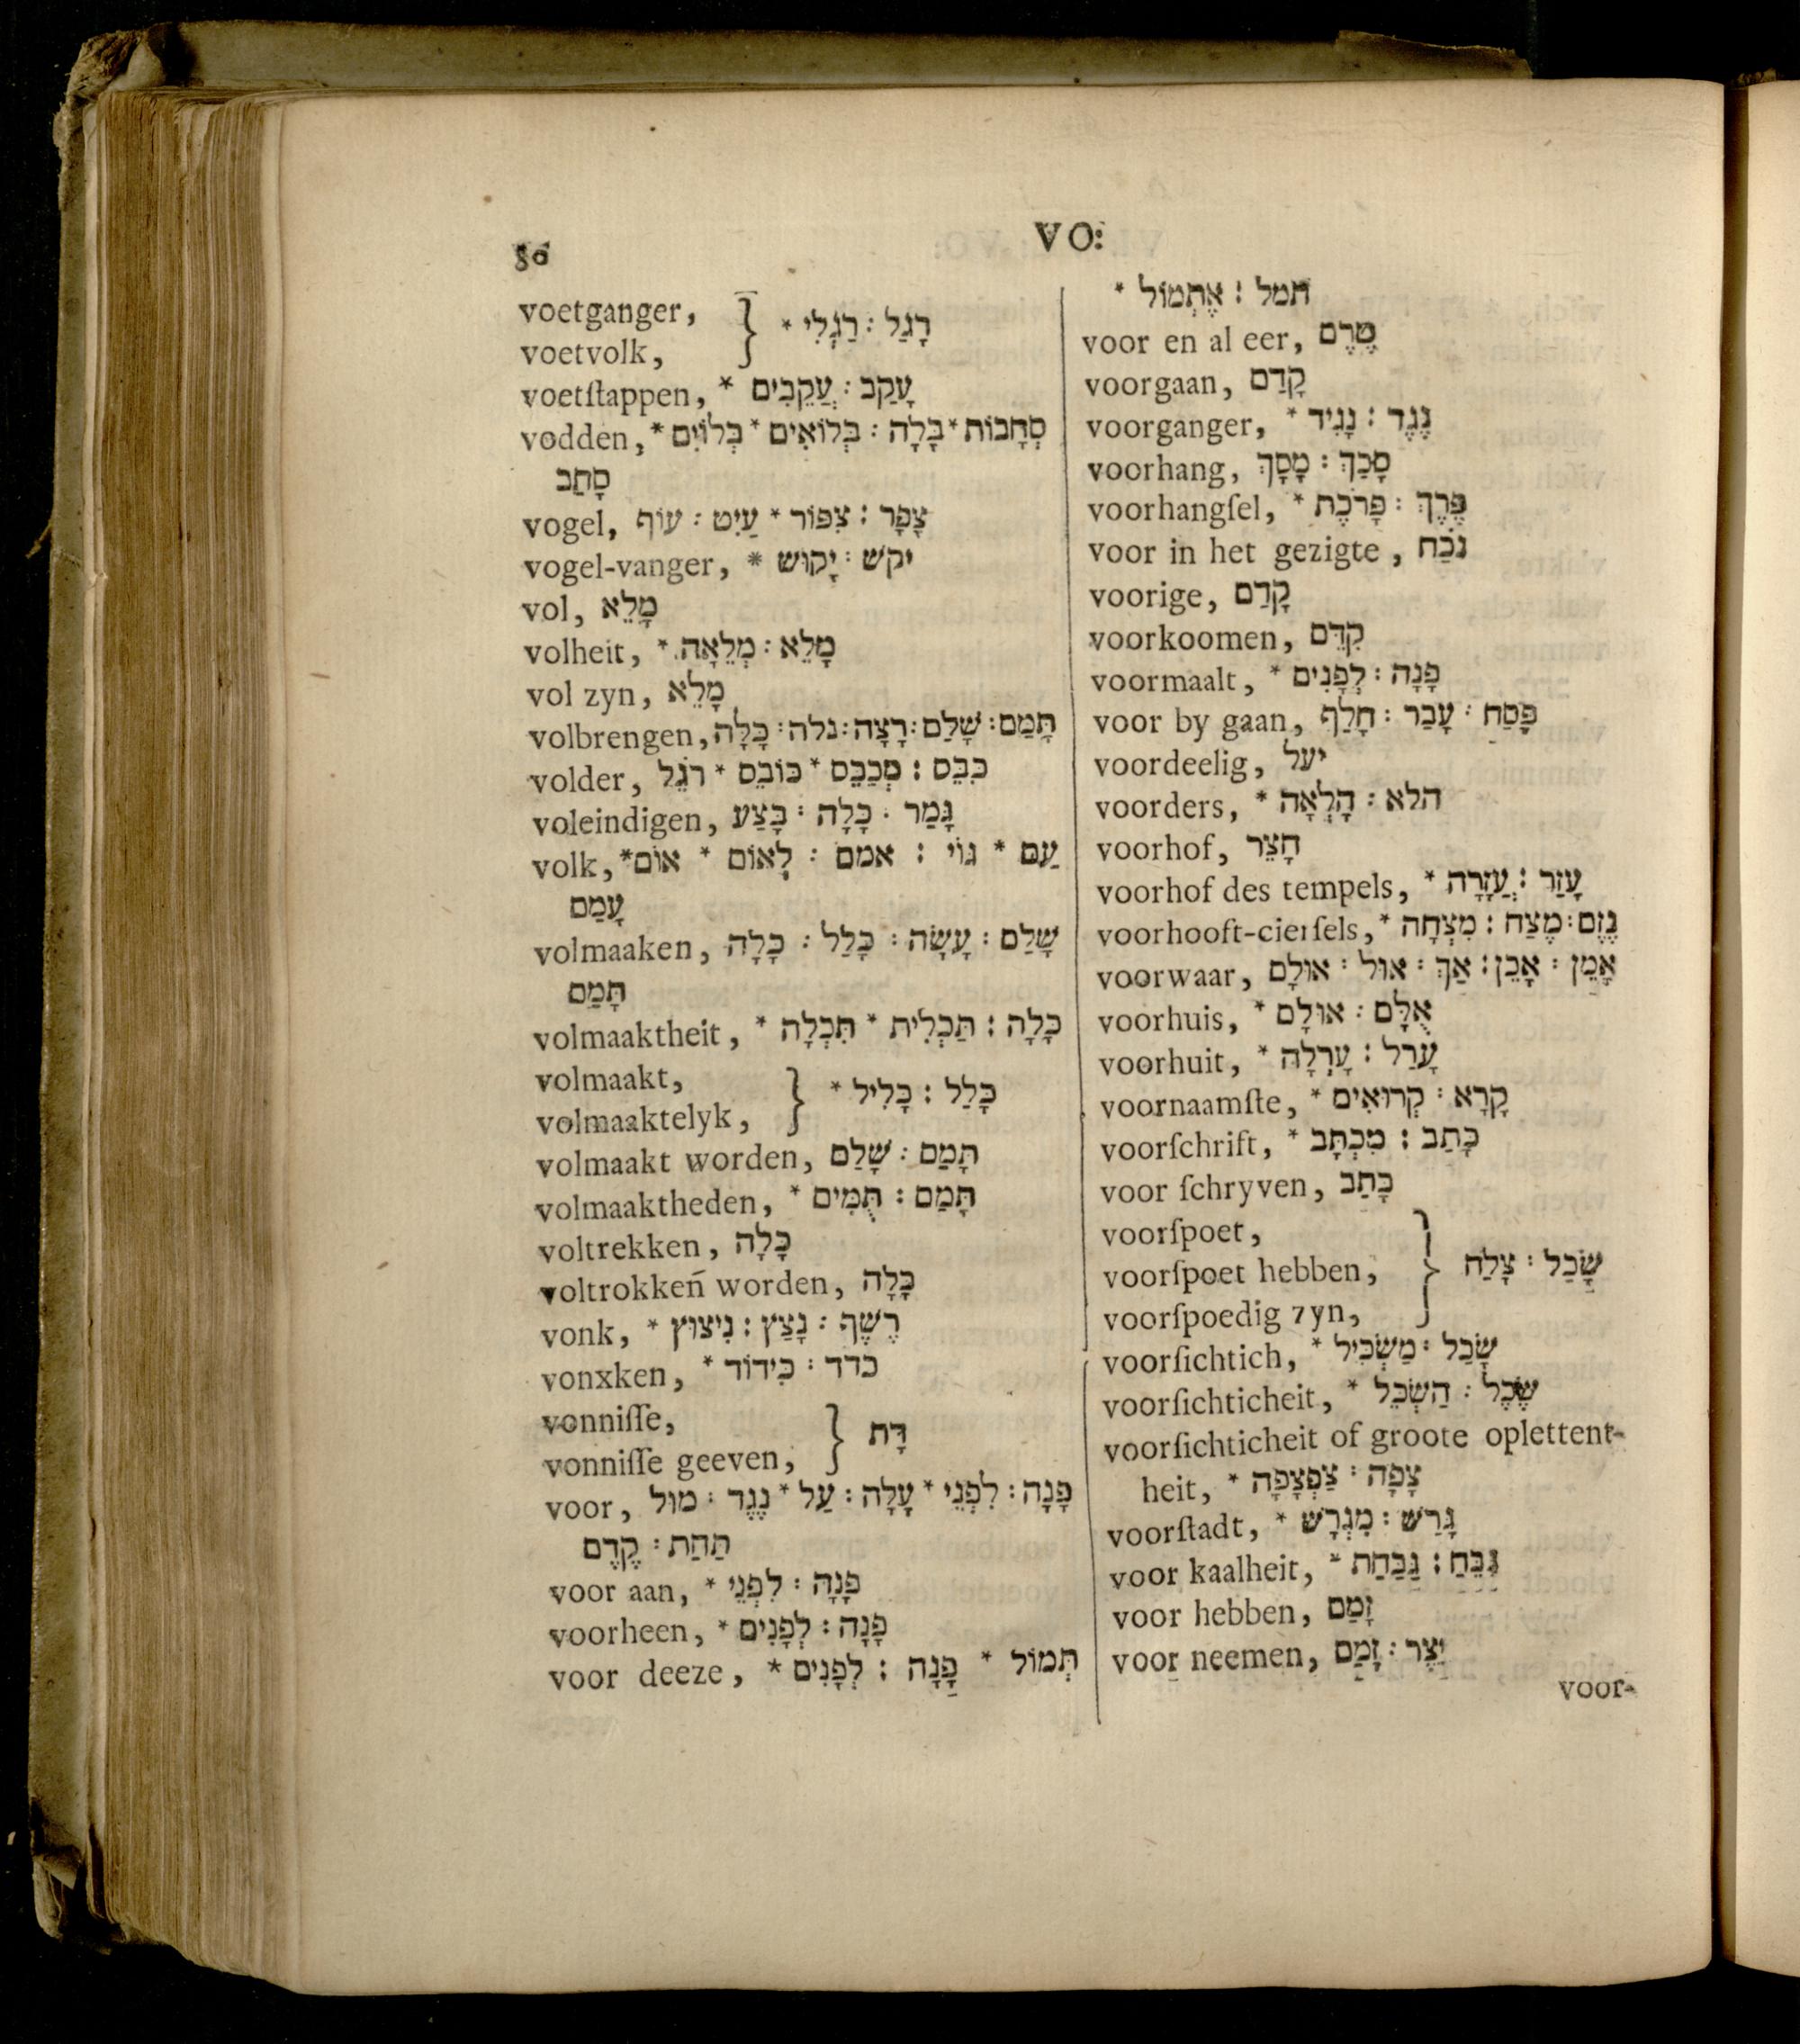 80
VO:
voetganger,
voetvolk, } רָגַל : רַגְלִי *
voetſtappen, * עָקַב : עֲקֵבִים
vodden, * סְחָבוֹת * בָּלָה : בְּלוֹאִים * בְּלוֹיִם
סָחַב
vogel, צָפָר : צִפּוֹר * עַיִט : עוֹף
vogel-vanger, * יקש : יָקוּש
vol, מָלֵא
volheit, * מָלֵא : מְלֵאָה
vol zyn, מָלֵא
volbrengen, תָּמַם : שָׁלַם : רָצָה : גלה : כָּלָה
volder, כִּבֵּס : מְכַבֵּס * כּוֹבֵס * רֹגֵל
voleindigen, גָּמַר . כָּלָה : בָּצַע
volk, * עַם * גּוֹי : אמם : לְאוֹם * אוֹם
עָמַם
volmaaken, שָׁלַם : עָשָׂה : כָּלַל : כָּלָה
תָּמַם
volmaaktheit, * כָּלָה : תַּכְלִית * תִּכְלָה
volmaakt,
volmaaktelyk, } כָּלַל : כָּלִיל *
volmaakt worden, תָּמַם : שָׁלַם
volmaaktheden, * תָּמַם : תֻּמִּים
voltrekken, כָּלָה
voltrokkeñ worden, כָּלָה
vonk, * רֶשֶׁף : נָצַץ : נִיצוּץ
vonxken, * כדד : כִּידוֹד
vonniſſe,
vonniſſe geeven, } דָּת
voor, פָּנָה : לִפְנֵי * עָלָה : עַל * נֶגֶד : מול
תַּחַת : קֶדֶם
voor aan, * פָּנָה : לִפְנֵי
voorheen, * פָּנָה : לְפָנִים
voor deeze, * תְּמוֹל * פָּנָה : לְפָנִים
תמל : אֶתְמוֹל *
voor en al eer, טֶרֶם
voorgaan, קָדַם
voorganger, * נֶגֶד : נָגִיד
voorhang, סָכַךְ : מָסָךְ
voorhangſel, * פֶּרֶךְ : פָּרֹכֶת
voor in het gezigte, נֹכַח
voorige, קָדַם
voorkoomen, קִדֵּם
voormaalt, * פָּנָה : לְפָנִים
voor by gaan, פָּסַח : עָבַר : חָלַף
voordeelig, יעל
voorders, * הלא : הָלְאָה
voorhof, חָצֵר
voorhof des tempels, * עָזַר : עֲזָרָה
voorhooft-cierſels, * נֶזֶם : מֶצַח : מִצְחָה
voorwaar, אָמֵן : אָכֵן : אַךְ : אוּל : אוּלָם
voorhuis, * אֻלָם : אוּלָם
voorhuit, * עָרַל : עָרְלָה
voornaamſte, * קָרָא : קְרוּאִים
voorſchrift, * כָּתַב : מִכְתָּב
voor ſchryven, כָּתַב
voorſpoet,
voorſpoet hebben, } שָׂכַל : צָלַח
voorſpoedig zyn,
voorſichtich, * שָׂכַל : מַשְׂכִּיל
voorſichticheit, * שֶׂכֶל : הַשְׂכֵּל
voorſichticheit of groote oplettent-
heit, * צָפָה : צַפְצָפָה
voorſtadt, * גָּרַשׁ : מִגְרָשׁ
voor kaalheit, * גִּבֵּחַ : גַּבַּחַת
voor hebben, זָמַם
voor neemen, יֵצֶר : זָמַם
voor-